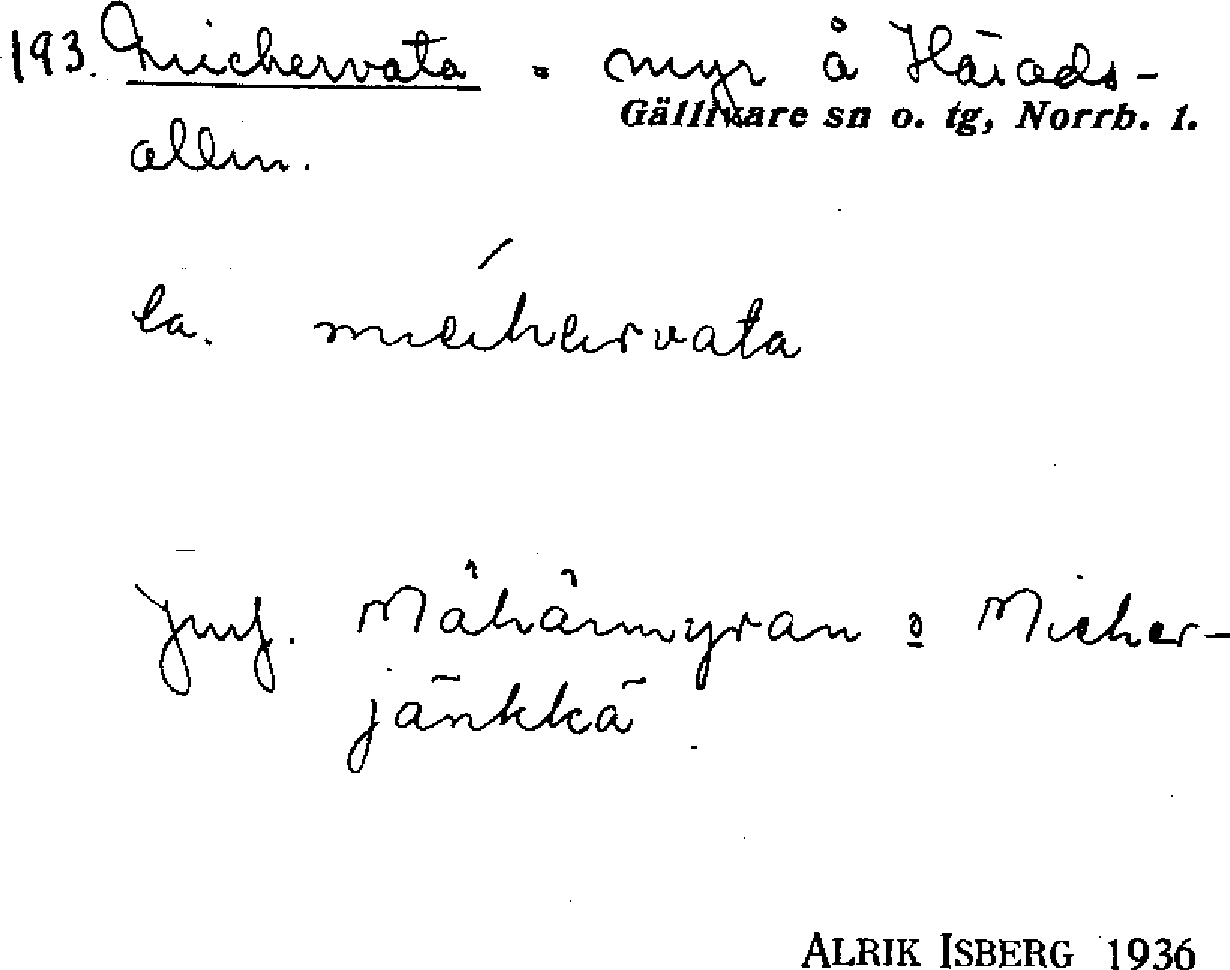 193. Miehervata = myr å Härads-
Gällivare sn o. tg, Norrb. l.
allm.
la. mieihervata
Jmf. Mähärmyran o Mieher-
jänkkä
ALRIK ISBERG 1936